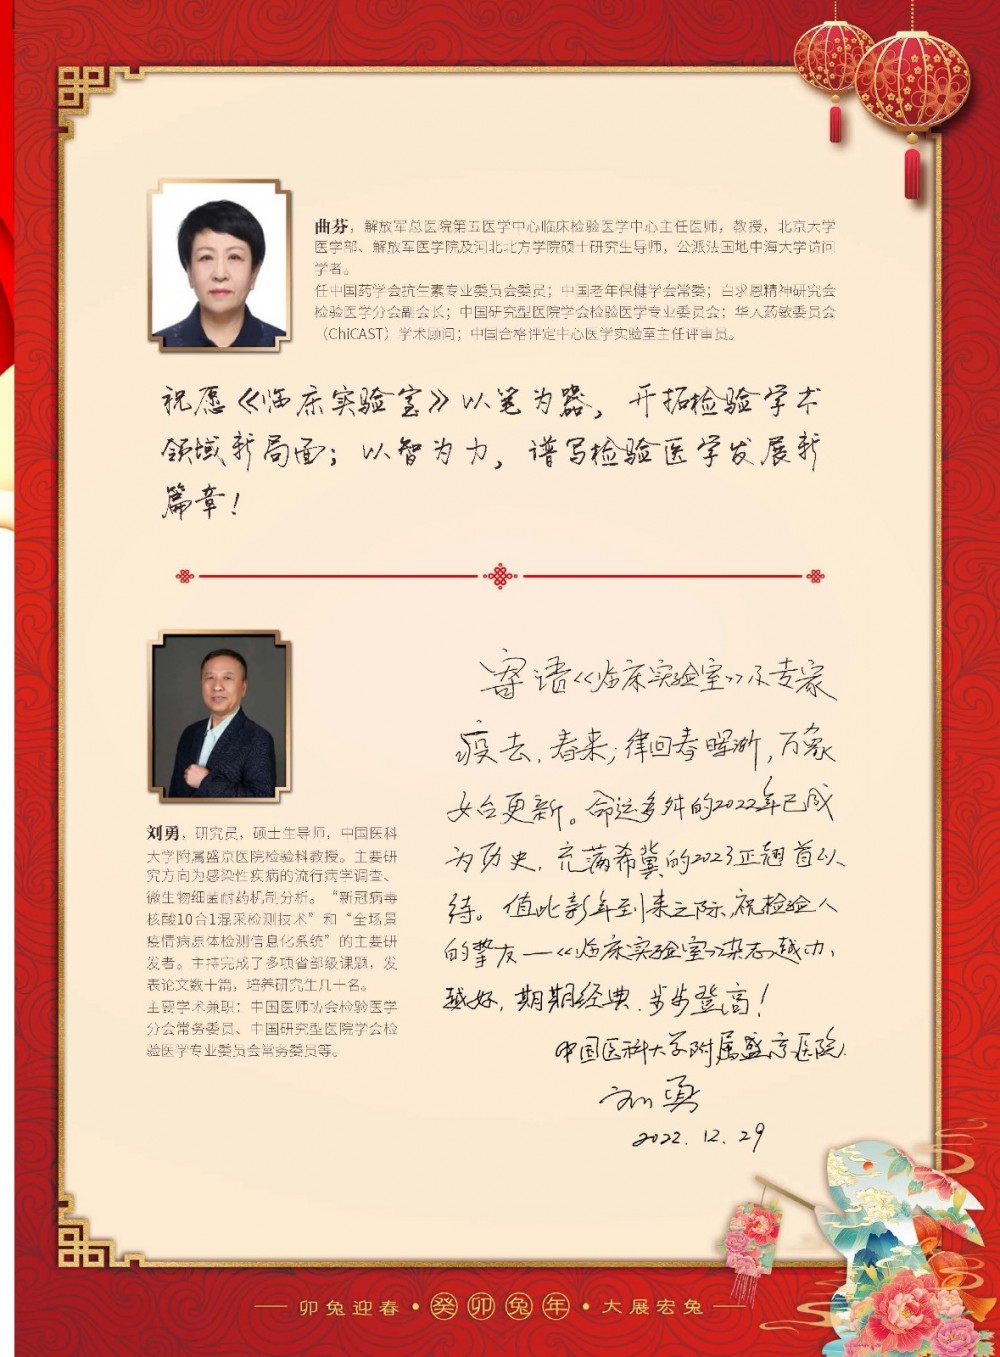 曲芬，解放军总医院第五医学中心临床检验医学中心主任医师，教授，北京大学
医学部、解放军医学院及河北北方学院硕士研究生导师，公派法国地中海大学访问
学者。
任中国药学会抗生素专业委员会委员；中国老年保健学会常委；白求恩精神研究会
检验医学分会副会长；中国研究型医院学会检验医学专业委员会；华人药敏委员会
（ChiCAST）学术顾问；中国合格评定中心医学实验室主任评审员。
祝愿《临床实验室》以笔为器，开拓检验学术
领域新局面；以智为力，谱写检验医学发展新
篇章！
刘勇，研究员，硕士生导师，中国医科
大学附属盛京医院检验科教授。主要研
究方向为感染性疾病的流行病学调查、
微生物细菌耐药机制分析。“新冠病毒
核酸10合1混采检测技术”和“全场景
疫情病原体检测信息化系统”的主要研
发者。主持完成了多项省部级课题，发
表论文数十篇，培养研究生几十名。
主要学术兼职：中国医师协会检验医学
分会常务委员、中国研究型医院学会检
验医学专业委员会常务委员等。
寄语《临床实验室》及专家
疫去，春来；律回春晖渐，万象
始更新。命运多舛的2022年已成
为历史，充满希冀的2023正翘首以
待。值此新年到来之际，祝检验人
的挚友—《临床实验室》杂志越办，
越好，期期经典，步步登高！
中国医科大学附属盛京医院
刘勇
2022.12.29
卯兔迎春·癸卯兔年·大展宏兔